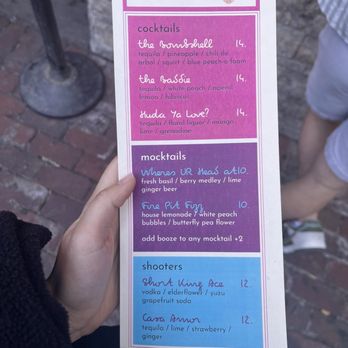 cocktails
the bombshell 14.
tequila / pineapple / chili de
arbol / squirt / blue peach-o foam
the baddie 14.
tequila / white peach / aperol
lemon / hibiscus
Huda Ya Love? 14.
tequila / floral liquor / mango
lime / grenadine
mocktails
Wheres UR Head at 10.
fresh basil / berry medley / lime
ginger beer
Fire Pit Fizz 10.
house lemonade / white peach
bubbles / butterfly pea flower
add booze to any mocktail +2
shooters
Short King Ace 12.
vodka / elderflower / yuzu
grapefruit soda
Casa Amor 12.
tequila / lime / strawberry /
ginger